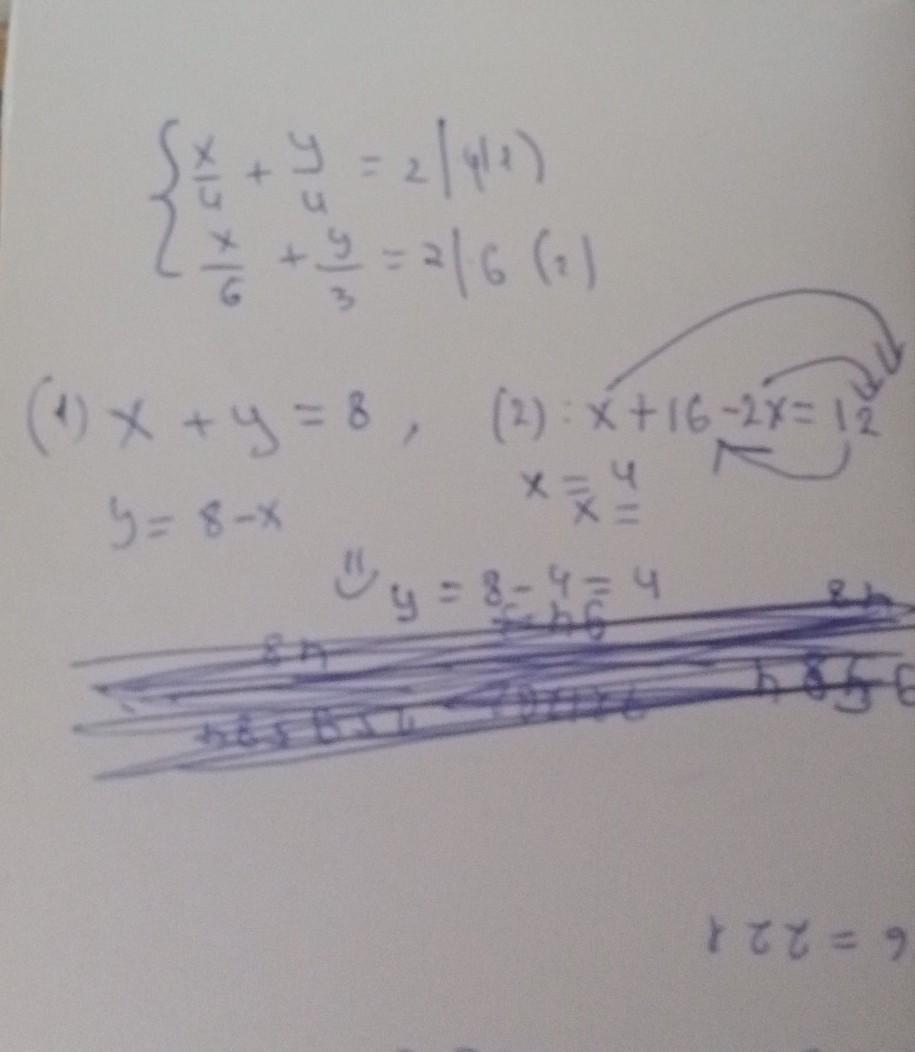 x/4 + y/4 = 2 | 4 (1)
x/6 + y/3 = 2 | · 6 (2)
(1) x + y = 8 , (2) : x + 16 - 2x = 12
y = 8 - x
x = 4
x =
y = 8 - 4 = 4
6 = 2 2 1